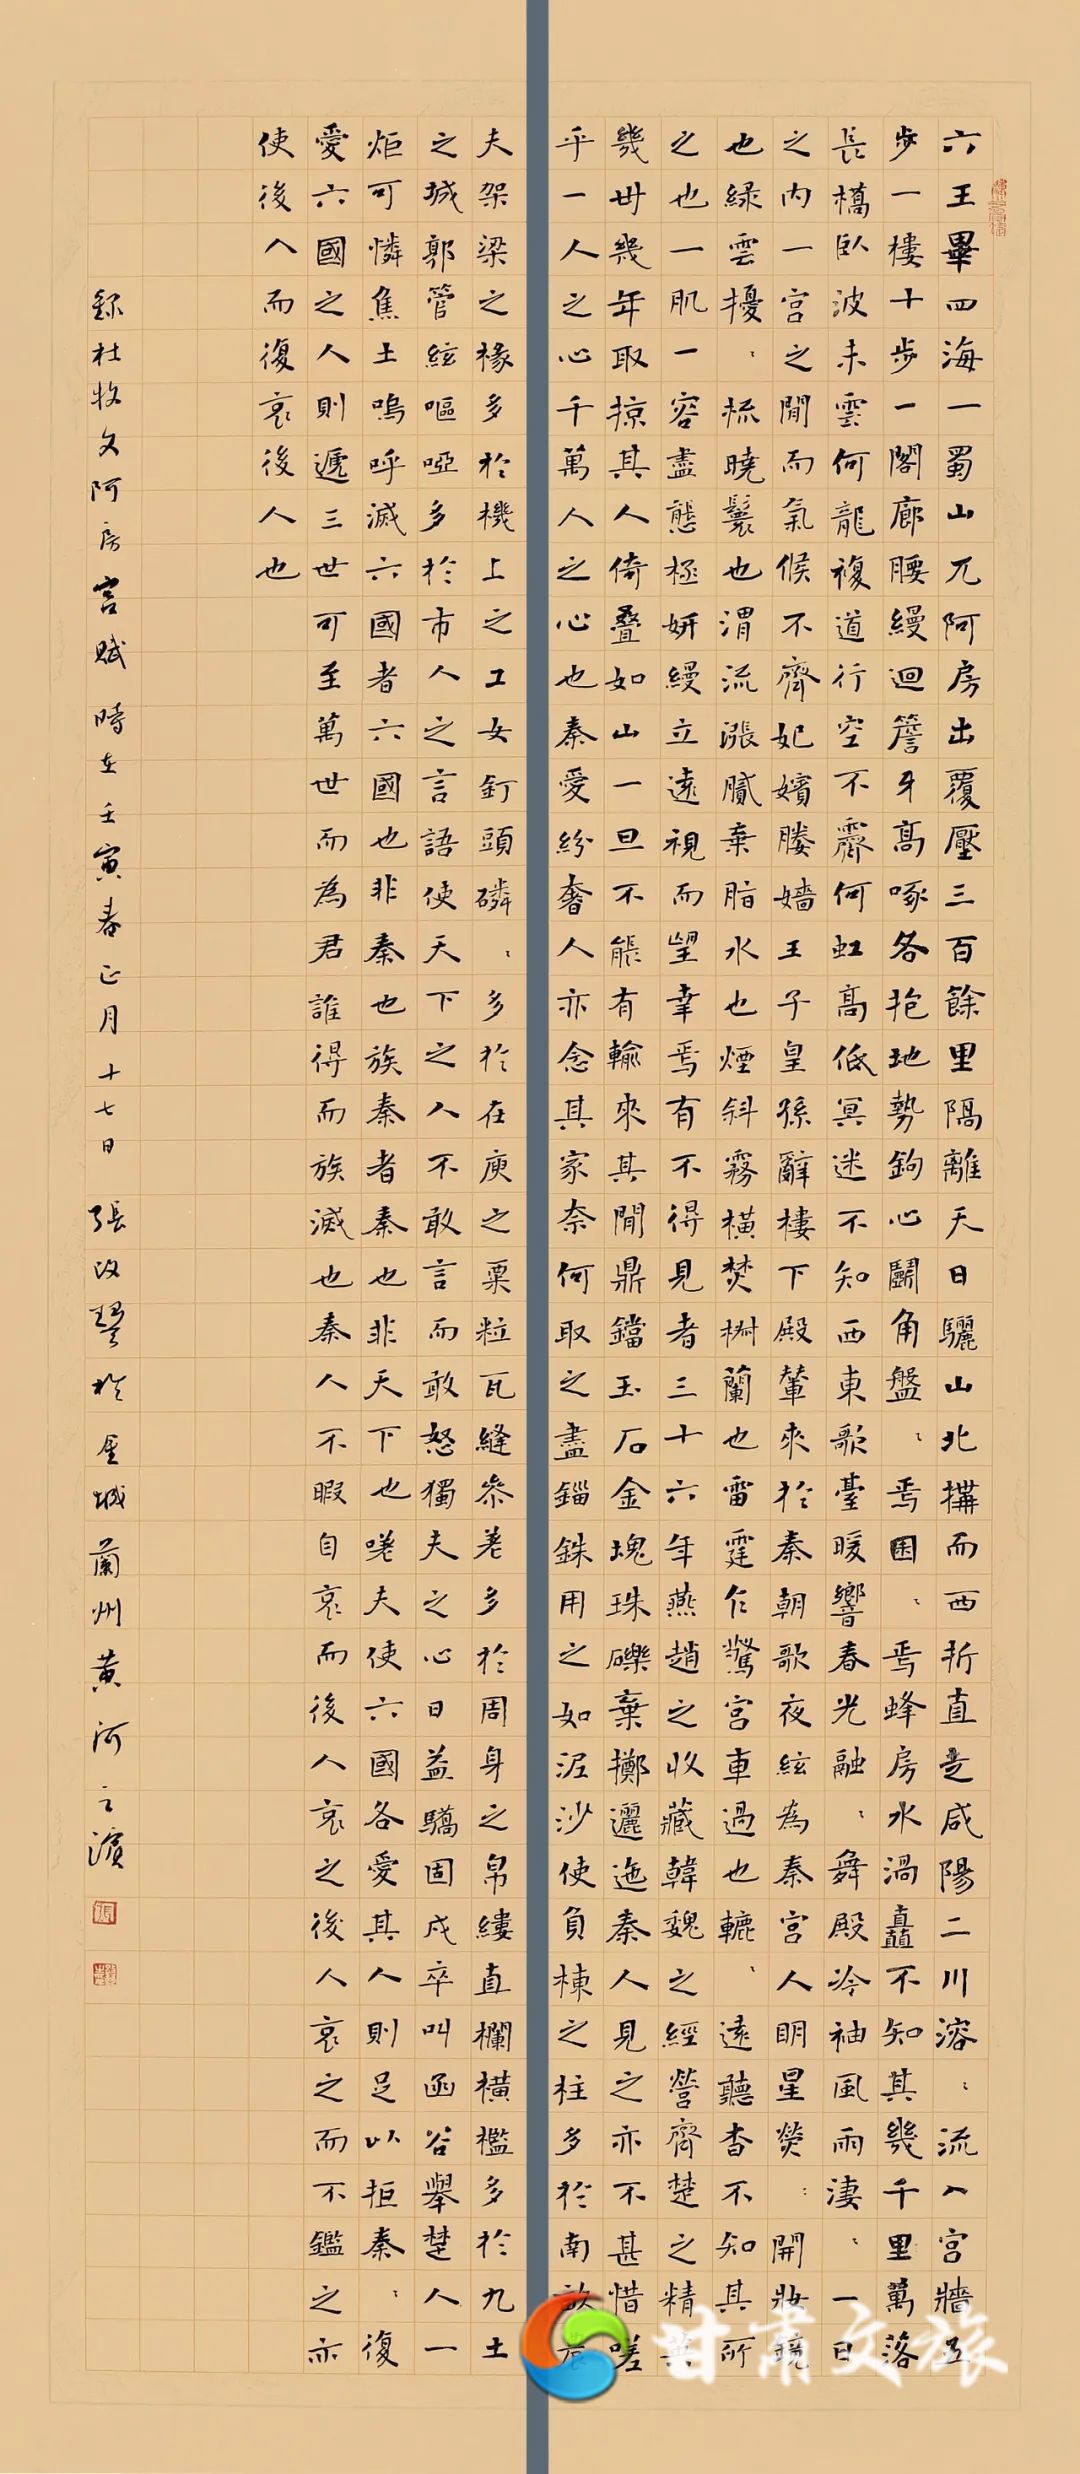 六王畢四海一蜀山兀阿房出覆壓三百餘里隔離天日驪山北搆而西折直走咸陽二川溶〻流入宮牆五
步一樓十步一閣廊腰縵迴簷牙高啄各抱地勢鉤心鬭角盤〻焉囷〻焉蜂房水渦矗不知其幾千里萬落
長橋臥波未雲何龍複道行空不霽何虹高低冥迷不知西東歌臺暖響春光融〻舞殿冷袖風雨淒〻一日
之內一宮之間而氣候不齊妃嬪媵嬙王子皇孫辭樓下殿輦來於秦朝歌夜絃為秦宮人明星熒〻開妝鏡
也綠雲擾〻梳曉鬟也渭流漲膩棄脂水也煙斜霧橫焚椒蘭也雷霆乍驚宮車過也轆〻遠聽杳不知其所
之也一肌一容盡態極妍縵立遠視而望幸焉有不得見者三十六年燕趙之收藏韓魏之經營齊楚之精英
幾世幾年取掠其人倚疊如山一旦不能有輸來其間鼎鐺玉石金塊珠礫棄擲邐迤秦人見之亦不甚惜嗟
乎一人之心千萬人之心也秦愛紛奢人亦念其家奈何取之盡錙銖用之如泥沙使負棟之柱多於南畝農
夫架梁之椽多於機上之工女釘頭磷〻多於在庾之粟粒瓦縫參差多於周身之帛縷直欄橫檻多於九土
之城郭管絃嘔啞多於市人之言語使天下之人不敢言而敢怒獨夫之心日益驕固戍卒叫函谷舉楚人一
炬可憐焦土嗚呼滅六國者六國也非秦也族秦者秦也非天下也嗟夫使六國各愛其人則足以拒秦〻復
愛六國之人則遞三世可至萬世而為君誰得而族滅也秦人不暇自哀而後人哀之後人哀之而不鑑之亦
使後人而復哀後人也
錄杜牧文阿房宮賦 時在壬寅春正月十七日 張改琴於金城蘭州黃河之濱
甘肅文旅